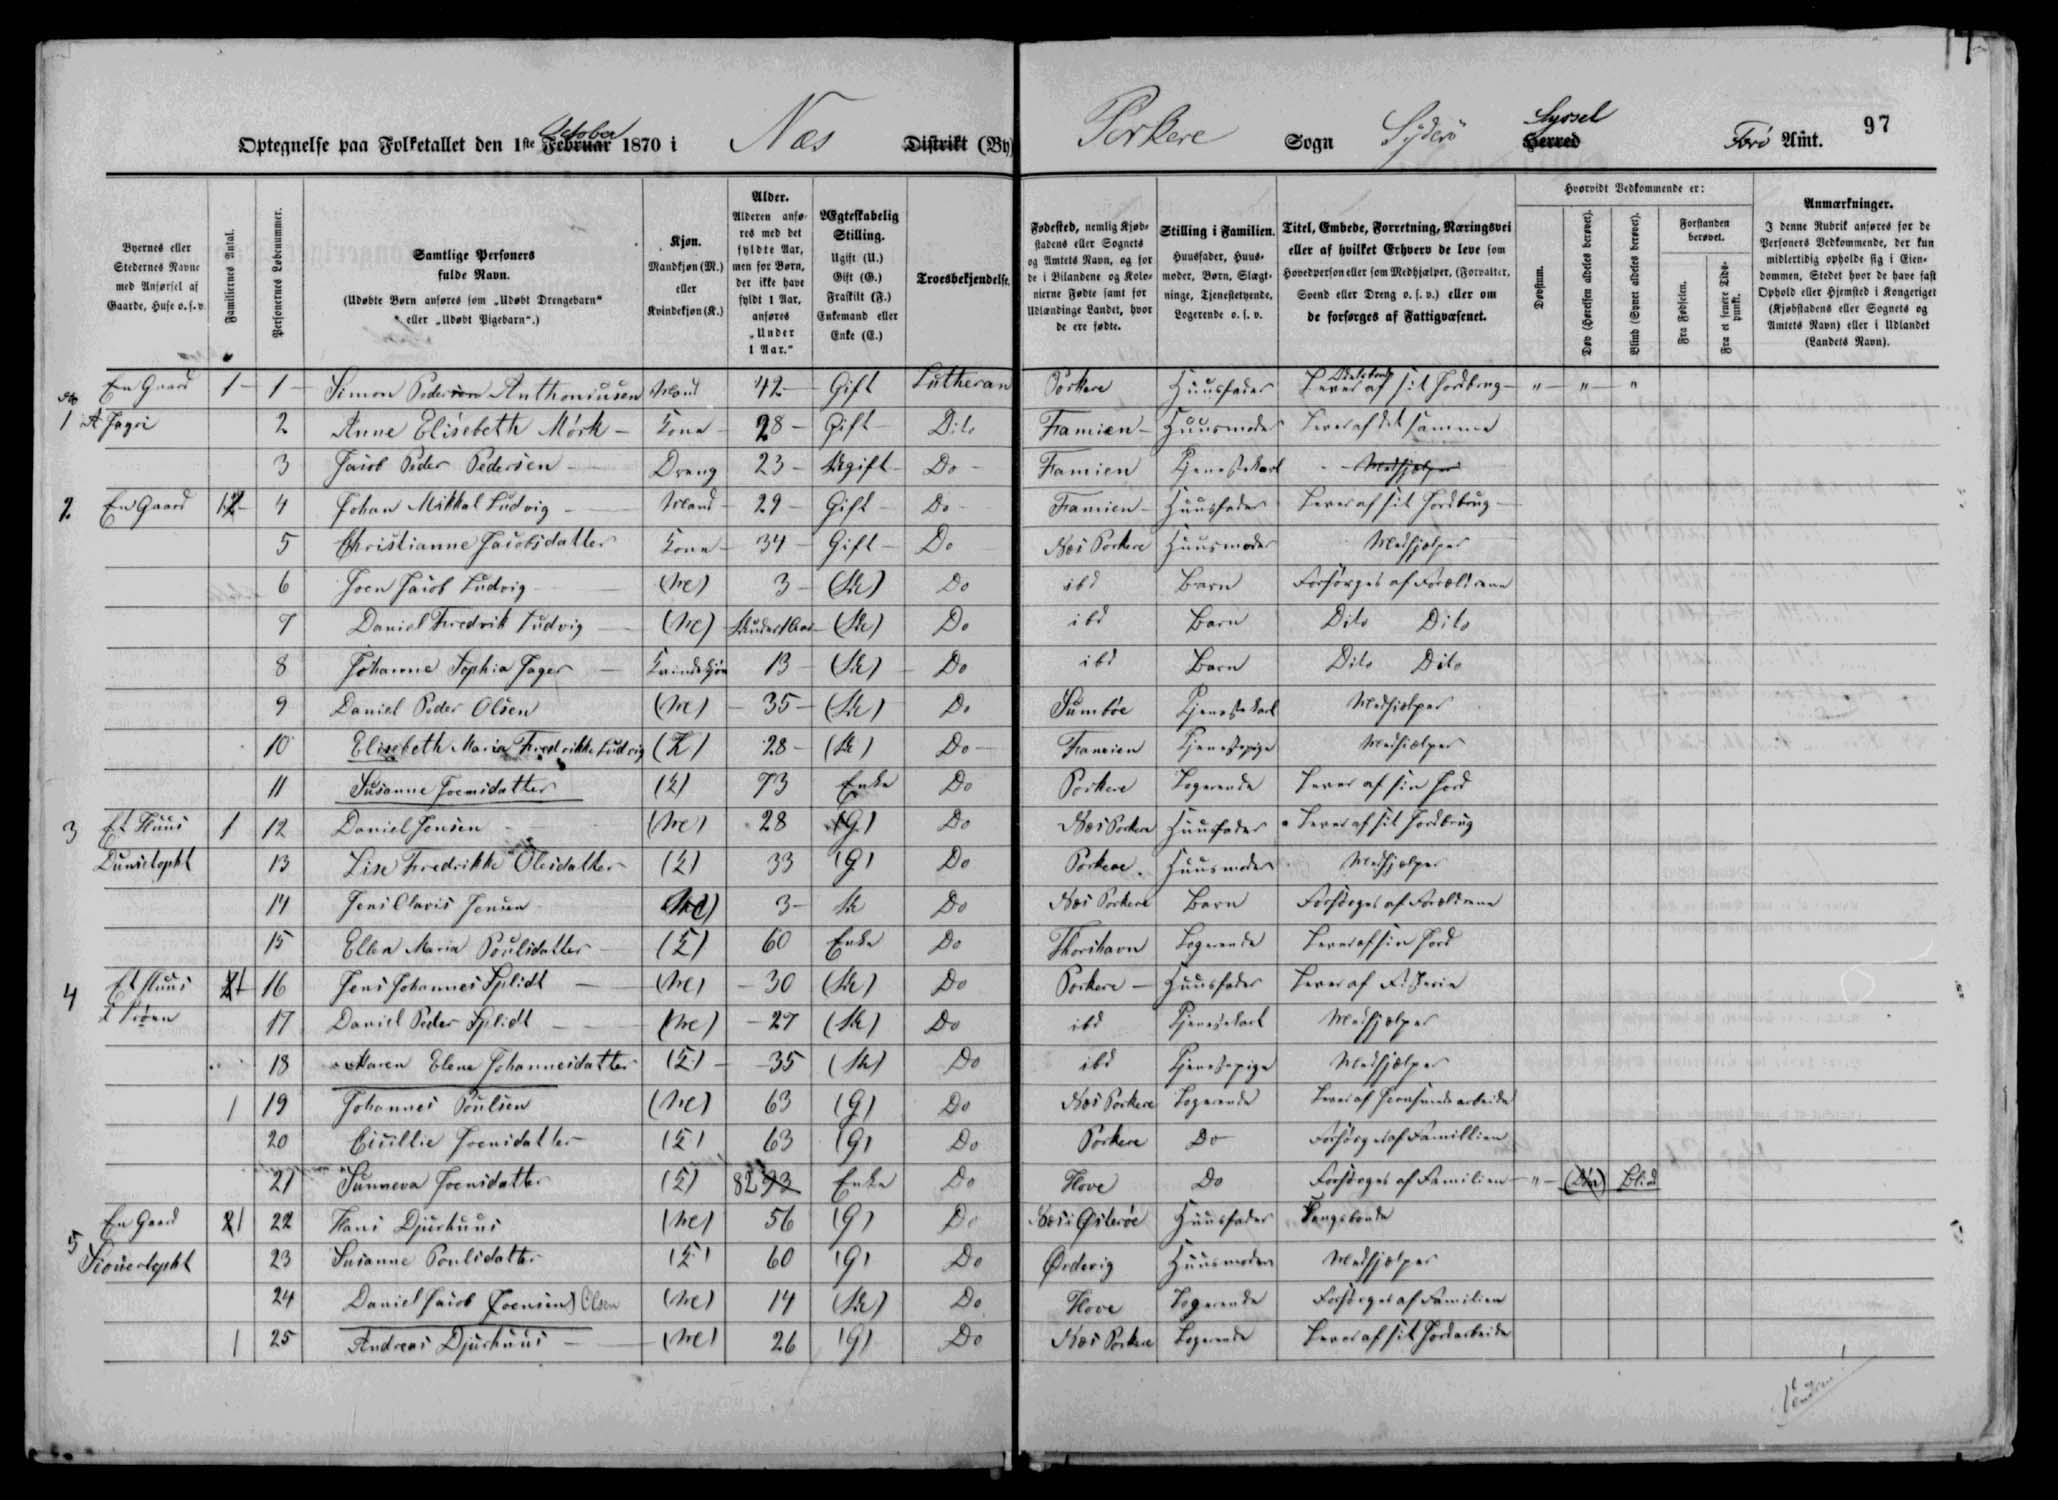 97
Optegnelse paa Folketallet den 1ste Februar October 1870 i Næs Distrikt (By) Porkere Sogn Syderö Herred Syssel Förö Amt.
Byernes eller Stedernes Navne med Anførsel af Gaarde, Huse o. s. v.
Familiernes Antal.
Personernes Løbenummer.
Samtlige Personers fulde Navn.
(Udøbte Børn anføres som „Udøbt Drengebarn“ eller „Udøbt Pigebarn“.)
Kjøn. Mandkjøn (M.) eller Kvindekjøn (K.)
Alder. Alderen anføres med det fyldte Aar, men for Børn, der ikke have fyldt 1 Aar, anføres „Under 1 Aar.“
Ægteskabelig Stilling. Ugift (U.) Gift (G.) Fraskilt (F.) Enkemand eller Enke (E.)
Troesbekjendelse.
Fødested, nemlig Kjøbstadens eller Sognets og Amtets Navn, og for de i Bilandene og Kolonierne Fødte samt for Udlændinge Landet, hvor de ere fødte.
Stilling i Familien. Huusfader, Huusmoder, Børn, Slægtninge, Tjenestetyende, Logerende o. s. v.
Titel, Embede, Forretning, Næringsvei eller af hvilket Erhverv de leve som Hovedperson eller som Medhjælper, (Forvalter, Svend eller Dreng o. s. v.) eller om de forsørges af Fattigvæsenet.
Hvorvidt Vedkommende er:
Døvstum.
Døv (Hørelsen aldeles berøvet).
Blind (Synet aldeles berøvet).
Forstanden berøvet.
Fra Fødselen.
Fra et senere Tidspunkt.
Anmærkninger.
I denne Rubrik anføres for de Personers Vedkommende, der kun midlertidig opholde sig i Eiendommen, Stedet hvor de have fast Ophold eller Hjemsted i Kongeriget (Kjøbstadens eller Sognets og Amtets Navn) eller i Udlandet (Landets Navn).
En Gaard 1 1 Simon Pedersen Anthoniusen Mand 42 Gift Lutheran Porkere Huusfader Lever af sit Jordbrug " " "
1 2 Anne Elisebeth Mörk Kone 28 Gift Dito Famien Huusmoder Lever af det samme
3 Jacob Peder Pedersen Dreng 23 Ugift Do Famien Tjenestekarl Medhjælper
2 En Gaard 4 Johan Mikkal Ludvig Mand 29 Gift Do Famien Huusfader Lever af sit Jordbrug
5 Christianne Jacobsdatter Kone 34 Gift Do Næs Porkere Huusmoder Medhjælper
6 Joen Jacob Ludvig (M) 3 (U) Do ibd Barn Forsørges af Forældrene
7 Daniel Fredrik Ludvig (M) Under 1 Aar (U) Do ibd Barn Dito Dito
8 Johanne Sophia Jager Kvindekjön 13 (U) Do ibd Barn Dito Dito
9 Daniel Peder Olsen (M) 35 (U) Do Sumböe Tjenestekarl Medhjælper
10 Elisebeth Maria Fredrikke Ludvig (K) 28 (U) Do Famien Tjenestepige Medhjælper
11 Susanne Joensdatter (K) 73 Enke Do Porkere Logerende Lever af sin Jord
3 Et Huus 1 12 Daniel Jensen (M) 28 (G) Do Næs Porkere Huusfader Lever af sit Jordbrug
13 Lise Fredrikke Olesdatter (K) 33 (G) Do Porkere Huusmoder Medhjælper
14 Jens Olavis Jensen (M) 3 U Do Næs Porkere Barn Forsørges af Forældrene
15 Ellen Maria Poulsdatter (K) 60 Enke Do Thorshavn Logerende Lever af sin Jord
4 Et Huus 1 16 Jens Johannes Splidt (M) 30 (U) Do Porkere Huusfader Lever af Fiskerie
17 Daniel Peder Splidt (M) 27 (U) Do ibd Tjenestekarl Medhjælper
18 Maren Elene Johannesdatter (K) 35 (U) Do ibd Tjenestepige Medhjælper
1 19 Johannes Poulsen (M) 63 (G) Do Næs Porkere Logerende
20 Joensdatter (K) 63 (G) Do Porkere Do Forsørges af Famillien
21 Sunneva Joensdatter (K) 82 93 Enke Do Hove Do Forsørges af Familien " (Döv) Blind
5 En Gaard 1 22 Hans Djurhuus (M) 56 (G) Do Næs i Østeröe Huusfader Kongsbonde
23 Susanne Poulsdatter (K) 60 (G) Do Ørdevig Huusmoder Medhjælper
24 Daniel Jacob (Joensen) Olsen (M) 14 (U) Do Hove Logerende Forsørges af Familien
1 25 Andreas Djurhuus (M) 26 (G) Do Næs Porkere Logerende Lever af sit Jordarbeide